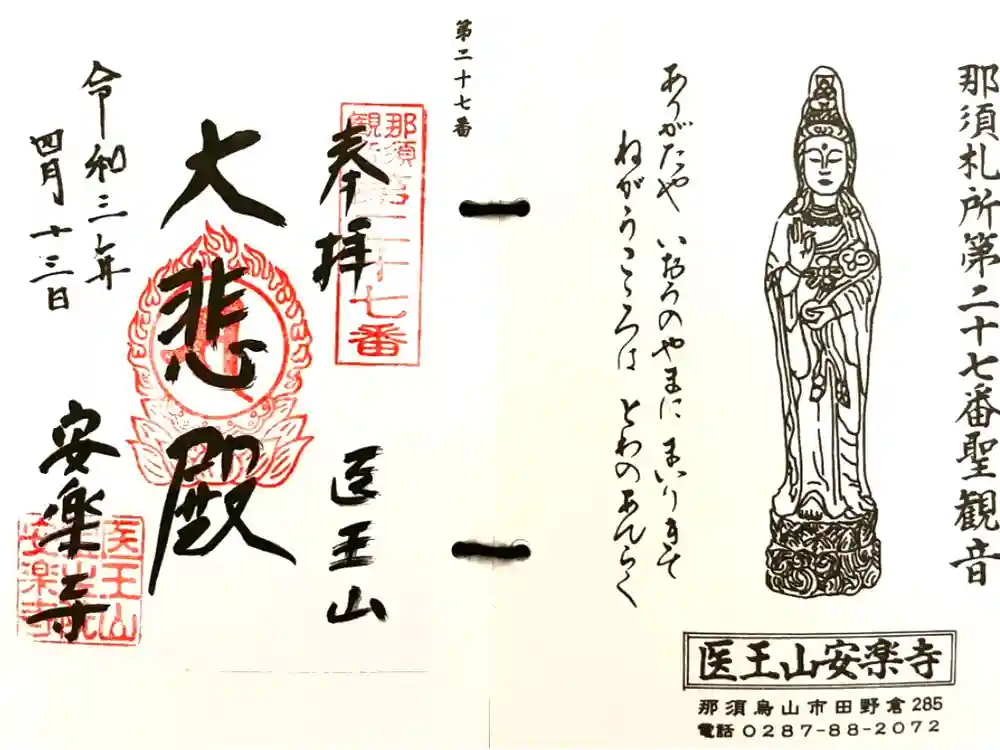 那須札所第二十七番聖観音
ありがたや いおうのやまに まいりきて
ねがうこころは とわのあんらく
医王山安楽寺
那須烏山市田野倉285
電話 0287-88-2072
第二十七番
奉拝
医王山
那須
観音
第二十七番
大悲殿
令和三年
四月十三日
安楽寺
医王山
安楽寺